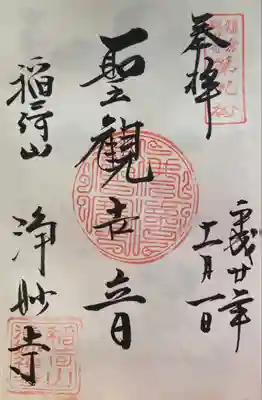 奉拝
平成廿年
十一月一日
聖観世音
稲荷山
浄妙寺